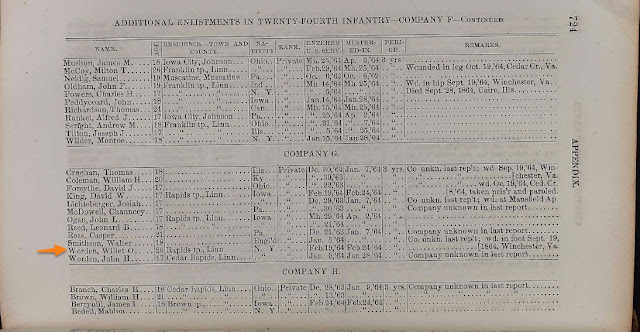 ADDITIONAL ENLISTMENTS IN TWENTY-FOURTH INFANTRY—COMPANY F—CONTINUED.
724
APPENDIX.
NAME. AGE RESIDENCE—TOWN AND COUNTY. NATIVITY RANK. ENTERED U.S. SERV. MUSTERED-IN. PERIOD. REMARKS.
Mushon, James M. 18 Iowa City, Johnson Ohio.. Private Mh. 25,'64 Ap. 2,'64 3 yrs.
McCoy, Milton T. 28 Franklin tp., Linn Feb.29,'64 Mh. 25,'64 Wounded in leg Oct. 19,'64, Cedar Cr., Va.
Neidig, Samuel Muscatine, Muscatine Pa. Oc. 6,'62 Oc. 6,'62
Oldham, John F. 19 Franklin tp., Linn Ind. Mh. 14,'64 Mh. 25,'64 Wd. in hip Sept. 19,'64, Winchester, Va.
Powers, Charles H. N. Y. Died Sept. 28, 1864, Cairo, Ills.
Peddycoard, John 18 Iowa Jan. 14,'64 Jan.28,'64
Richardson, Thomas 24 Can Mh. 15,'64 Mh. 25,'64
Runkel, Alfred J. 17 Iowa City, Johnson Pa. 25,'64 Ap. 2,'64
Serfght, Andrew M. 18 Franklin tp., Linn Ohio. 21,'64 7,'64
Tilton, Joseph J. 17 Ills. 5,'64 25,'64
Wilder, Monroe 18 N. Y. Jan. 15,'64 Jan.28,'64
COMPANY G.
Craghan, Thomas 18 Private De. 29,'63 Jan. 7,'64 3 yrs. Co. unkn. last rep't; wd. Sep. 19,'64, Win-
Coleman, William H. 20 Ky 30,'63 [chester, Va.
Forsythe, David J. 17 Ohio 22,'63 wd. Oc. 19,'64, Ced. Cr.
King, David W. 17 Rapids tp., Linn Feb.19,'64 Feb.24,'64 [8,'64, taken pris'r and paroled.
Lichteberger, Josiah 17 Iowa De. 29,'63 Jan. 7,'64 Co. unkn. last rep't; wd. at Mansfield Ap
McDowell, Chauncey 17 Pa. Company unknown in last report
Ogan, John L. 17 Rapids tp., Linn Iowa Mh. 29,'64 Ap. 2,'64
Reed, Leonard B. 18
Ross, Casper 21 Pa. De. 21,'63 Jan. 7,'64 Company unknown in last report
Smithson, Walter 18 Engl'd Jan. 5,'64 Co. unkn. last rep't; wd. in foot Sept. 19,
Worden, Willet O. 20 Rapids tp., Linn N. Y. Feb.19,'64 Feb.24,'64 [1864, Winchester, Va.
Worden, John H. 17 Cedar Rapids, Linn Jan. 9,'64 Jan.28,'64 Company unknown in last report
COMPANY H.
Branch, Charles H. 18 Cedar Rapids, Linn Ohio.. Private De. 28,'63 Jan. 7,'64 3 yrs. Company unknown in last report
Brown, William H. 21 13,'63
Berryhill, James T. 18 Brown tp., Iowa Feb 24,'64 Feb.24,'64
Bedell, Mahlon N. Y.